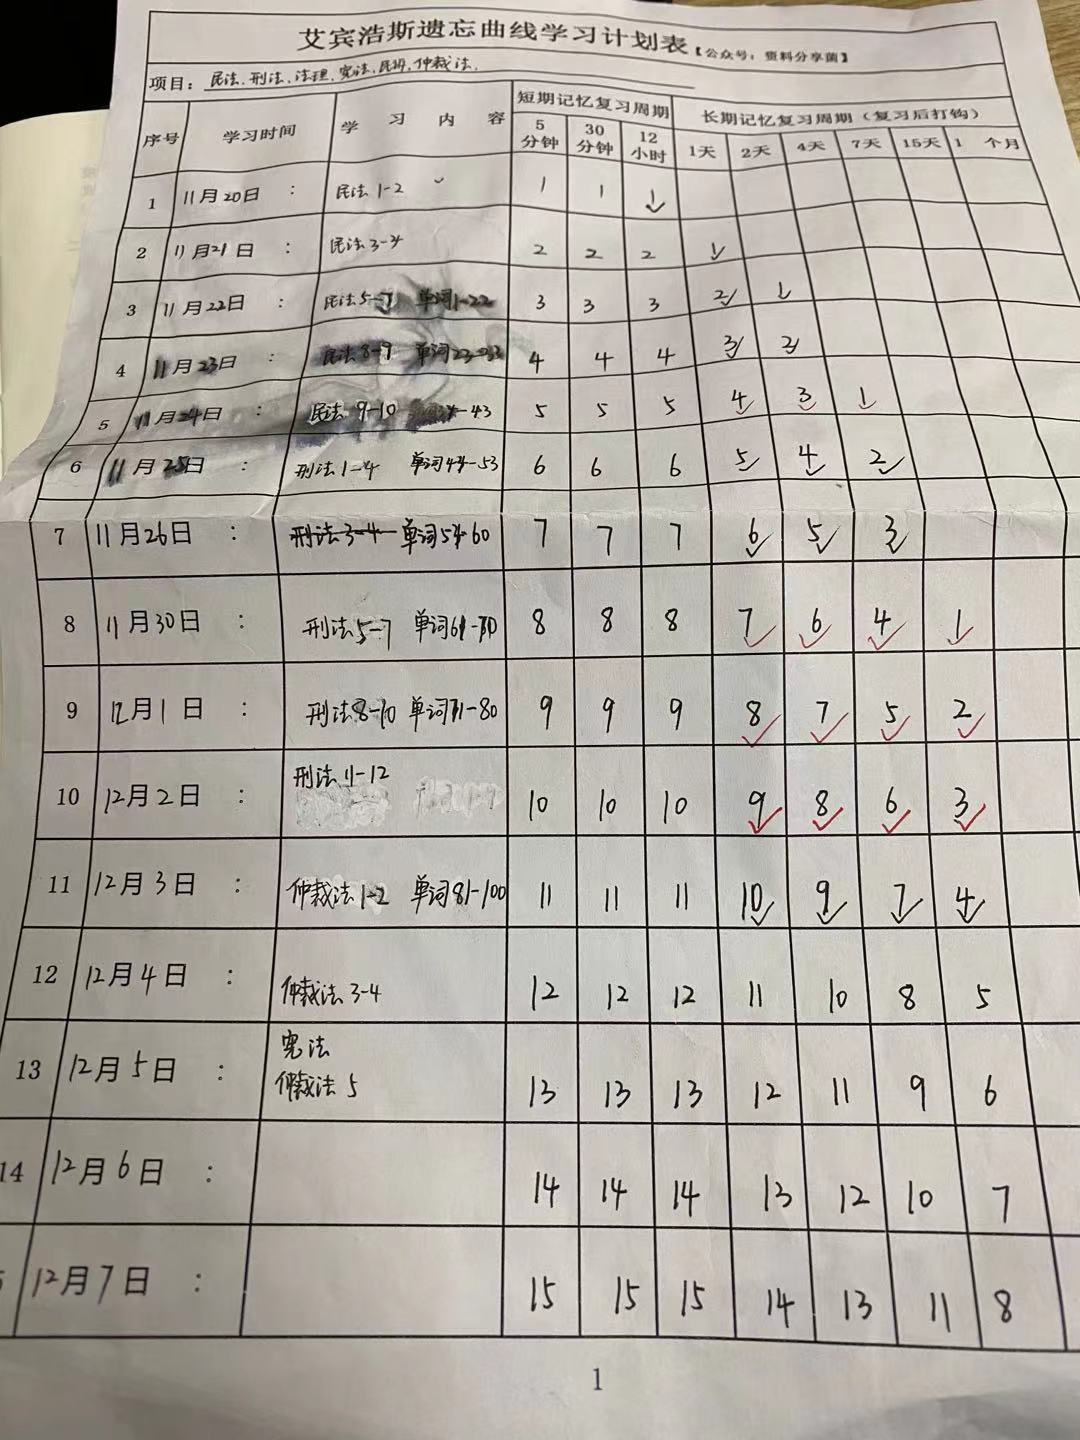 艾宾浩斯遗忘曲线学习计划表【公众号：资料分享菌】
项目：民法、刑法、法理、宪法、民诉、仲裁法、
序号 学习时间 学 习 内 容 短期记忆复习周期 长期记忆复习周期（复习后打钩）
5分钟 30分钟 12小时 1天 2天 4天 7天 15天 1 个月
1 11月20日 : 民法1-2 1 1 1
2 11月21日 : 民法3-4 2 2 2 1
3 11月22日 : 民法5-7 单词1-22 3 3 3 2 1
4 11月23日 : 民法8-9 单词23-33 4 4 4 3 2
5 11月24日 : 民法9-10 34-43 5 5 5 4 3 1
6 11月25日 : 刑法1-4 单词44-53 6 6 6 5 4 2
7 11月26日 : 刑法3-4 单词54-60 7 7 7 6 5 3
8 11月30日 : 刑法5-7 单词61-70 8 8 8 7 6 4 1
9 12月1日 : 刑法8-10 单词71-80 9 9 9 8 7 5 2
10 12月2日 : 刑法11-12 10 10 10 9 8 6 3
11 12月3日 : 仲裁法1-2 单词81-100 11 11 11 10 9 7 4
12 12月4日 : 仲裁法3-4 12 12 12 11 10 8 5
13 12月5日 : 宪法
仲裁法5 13 13 13 12 11 9 6
14 12月6日 : 14 14 14 13 12 10 7
5 12月7日 : 15 15 15 14 13 11 8
1